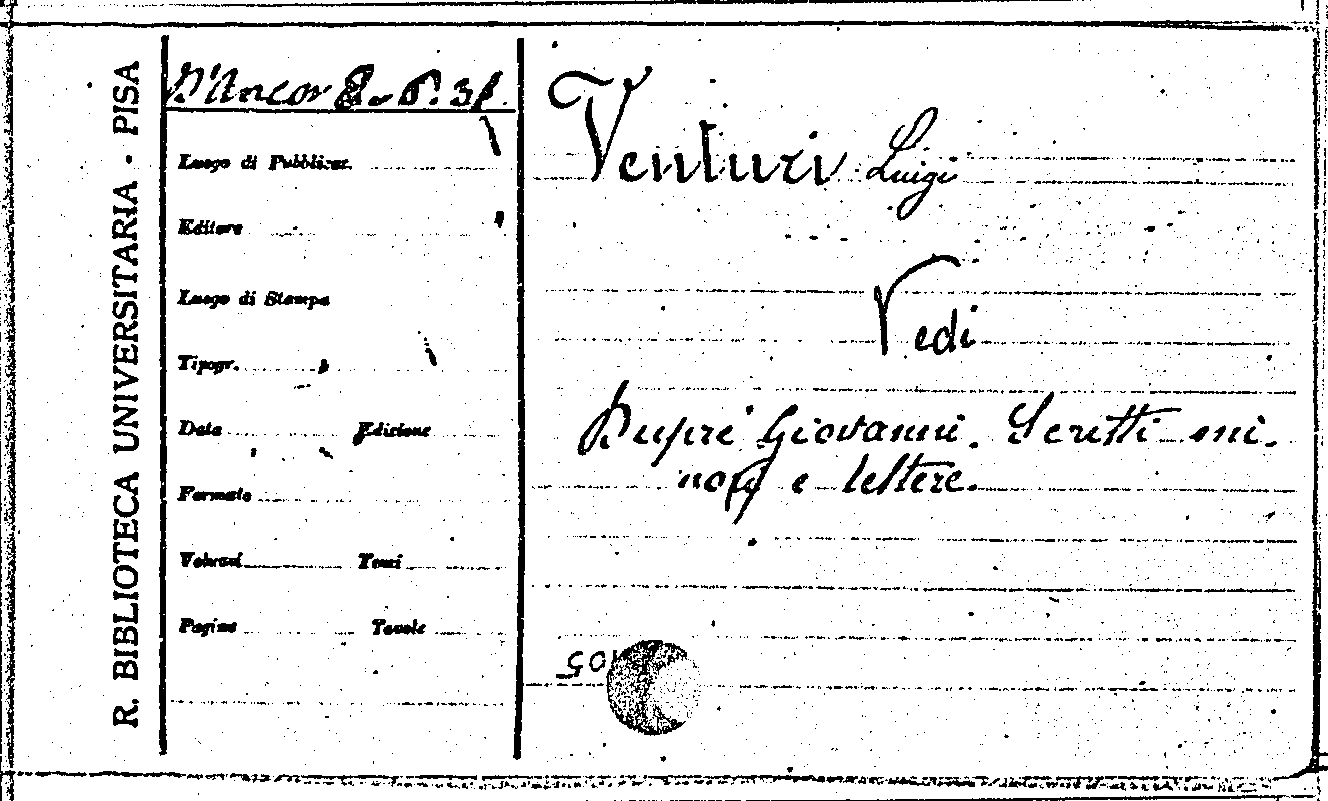 R. BIBLIOTECA UNIVERSITARIA - PISA
D'Ancor
Luogo di Pubblicaz.
Editore
Luogo di Stampa
Tipogr.
Data Edizione
Formato
Volumi Tomi
Pagine Tavole
Venturi Luigi
Vedi
Duprè Giovanni. Scritti mi-
nori e lettere.